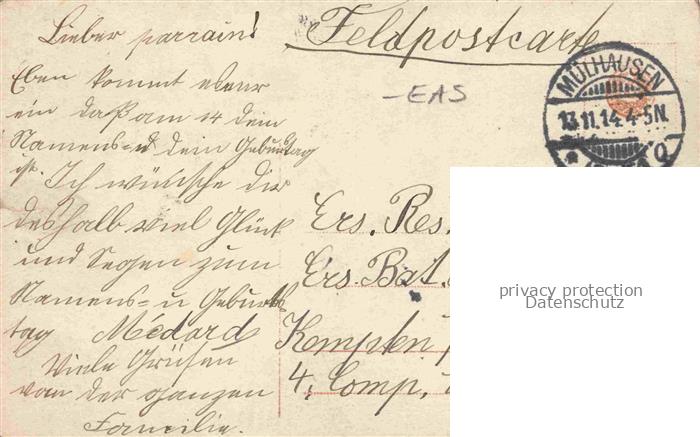 Lieber parrain!
Eben kommt
ein daß am 14 dein
Namens- u dein Geburtstag
ist. Ich wünsche dir
deshalb viel Glück
und Segen zum
Namens- u Geburts
tag Médard
Viele Grüsen
von der ganzen
Familie.
Feldpostcarte
EAS
MÜLHAUSEN
13.11.14.4-5N.
Ers. Res.
Ers. Bat.
Kempten
4. Comp.
privacy protection
Datenschutz